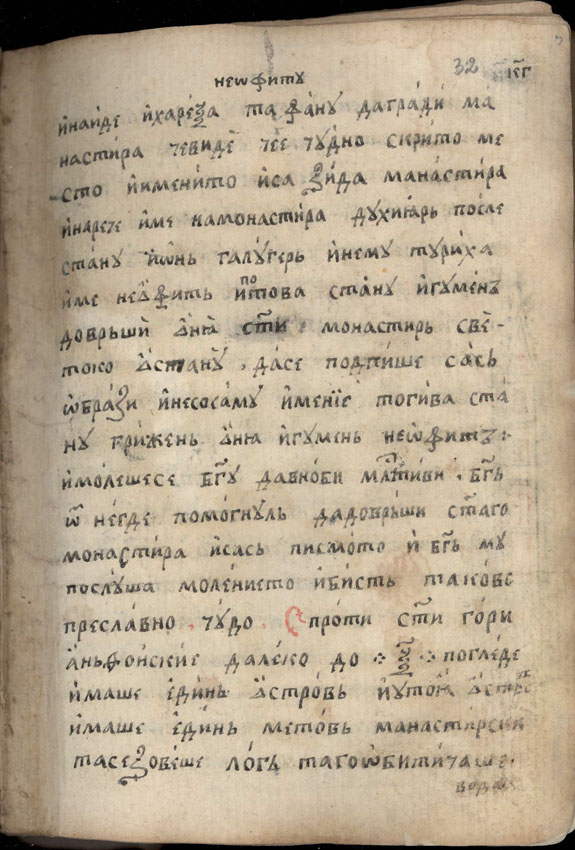 неѡфиту
32
и҆наи́де и҆харе́ѕа таѳа́ну дагради́ ма
настира чевидѐ чеѐ чꙋ́дно скрито ме
сто и҆имени́то и҆са ѕи́да мана́стира
и҆нарече и҆ме намонасти́ра дꙋхи́ꙗрь после
стану и҆ѡ҆нь галꙋ́герь и҆нему тури́ха
и҆ме неѡ҆фить и҆потова ста́ну и҆гуме́нъ
довръши̏ ст҃и монастирь све-
токо ѡ҆стану̏, да́се подпи́ше са́съ
ѡ҆бра́зи и҆несоса́му и҆ме́нїе тоги́ва ста́
ну гри́жень и҆гꙋмень неѡ҆фитъ :
и҆мо́лешесе бг҃у давно́би мл҃тиви . бг҃ь
ѿ не́где помо́гнуль дадовръ́ши ст҃а́го
монасти́ра и҆сась писмо́то и҆ бг҃ь му
послу́ша моле́нието и҆би́сть тако́ве
пресла́вно . чꙋ́до . спро́ти ст҃и го́ри
а҆ньѳо́нские дале́ко до погле́де
и҆маше е҆ди́нь ѡ҆стро́вь
и҆маше е҆ди́нь мето́вь манасти́рски
тасеѕове́ше ло́гъ тагоѡ҆бити́чаше.
вода